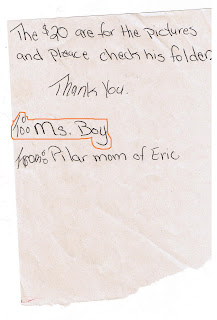 The $20 are for the pictures
and pleace check his folder.
Thank You.
Too Ms. Boy
From: Pilar mom of Eric